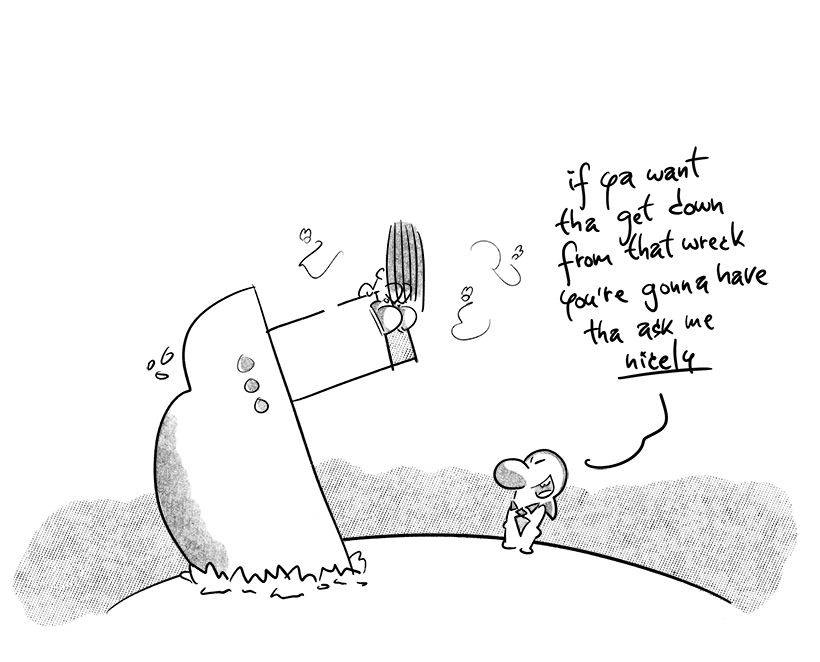 if ya want
tha get down
from that wreck
you're gonna have
tha ask me
nicely